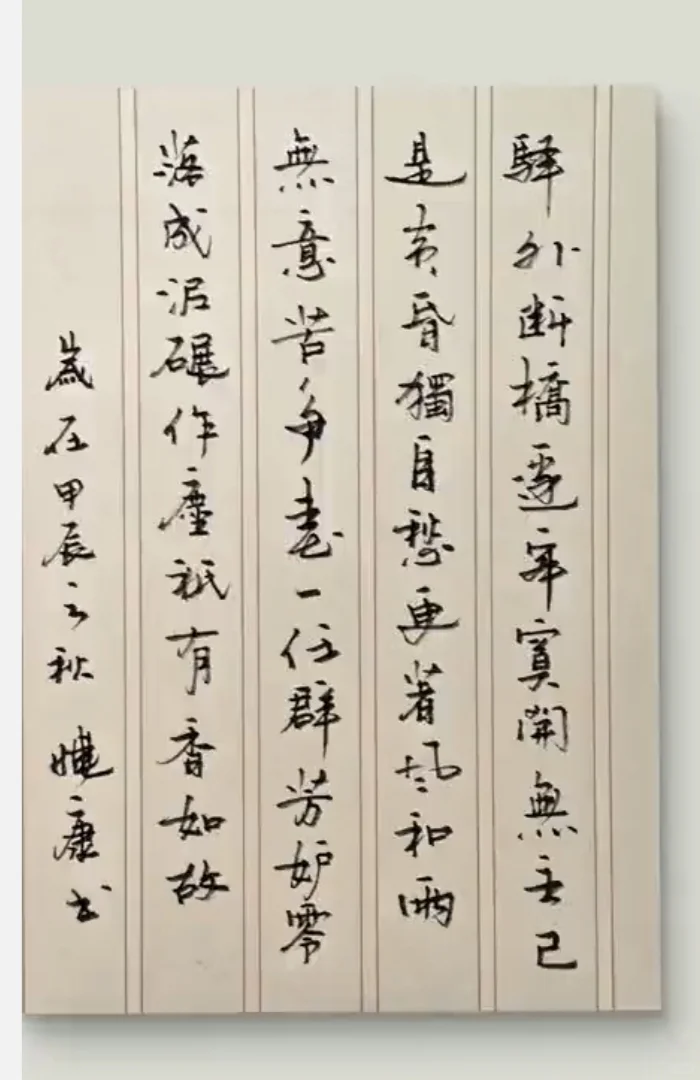 驛外断橋邊寂寞開無主已
是黄昏獨自愁更著風和雨
無意苦争春一任群芳妒零
落成泥碾作塵祇有香如故
歲在甲辰之秋 康书